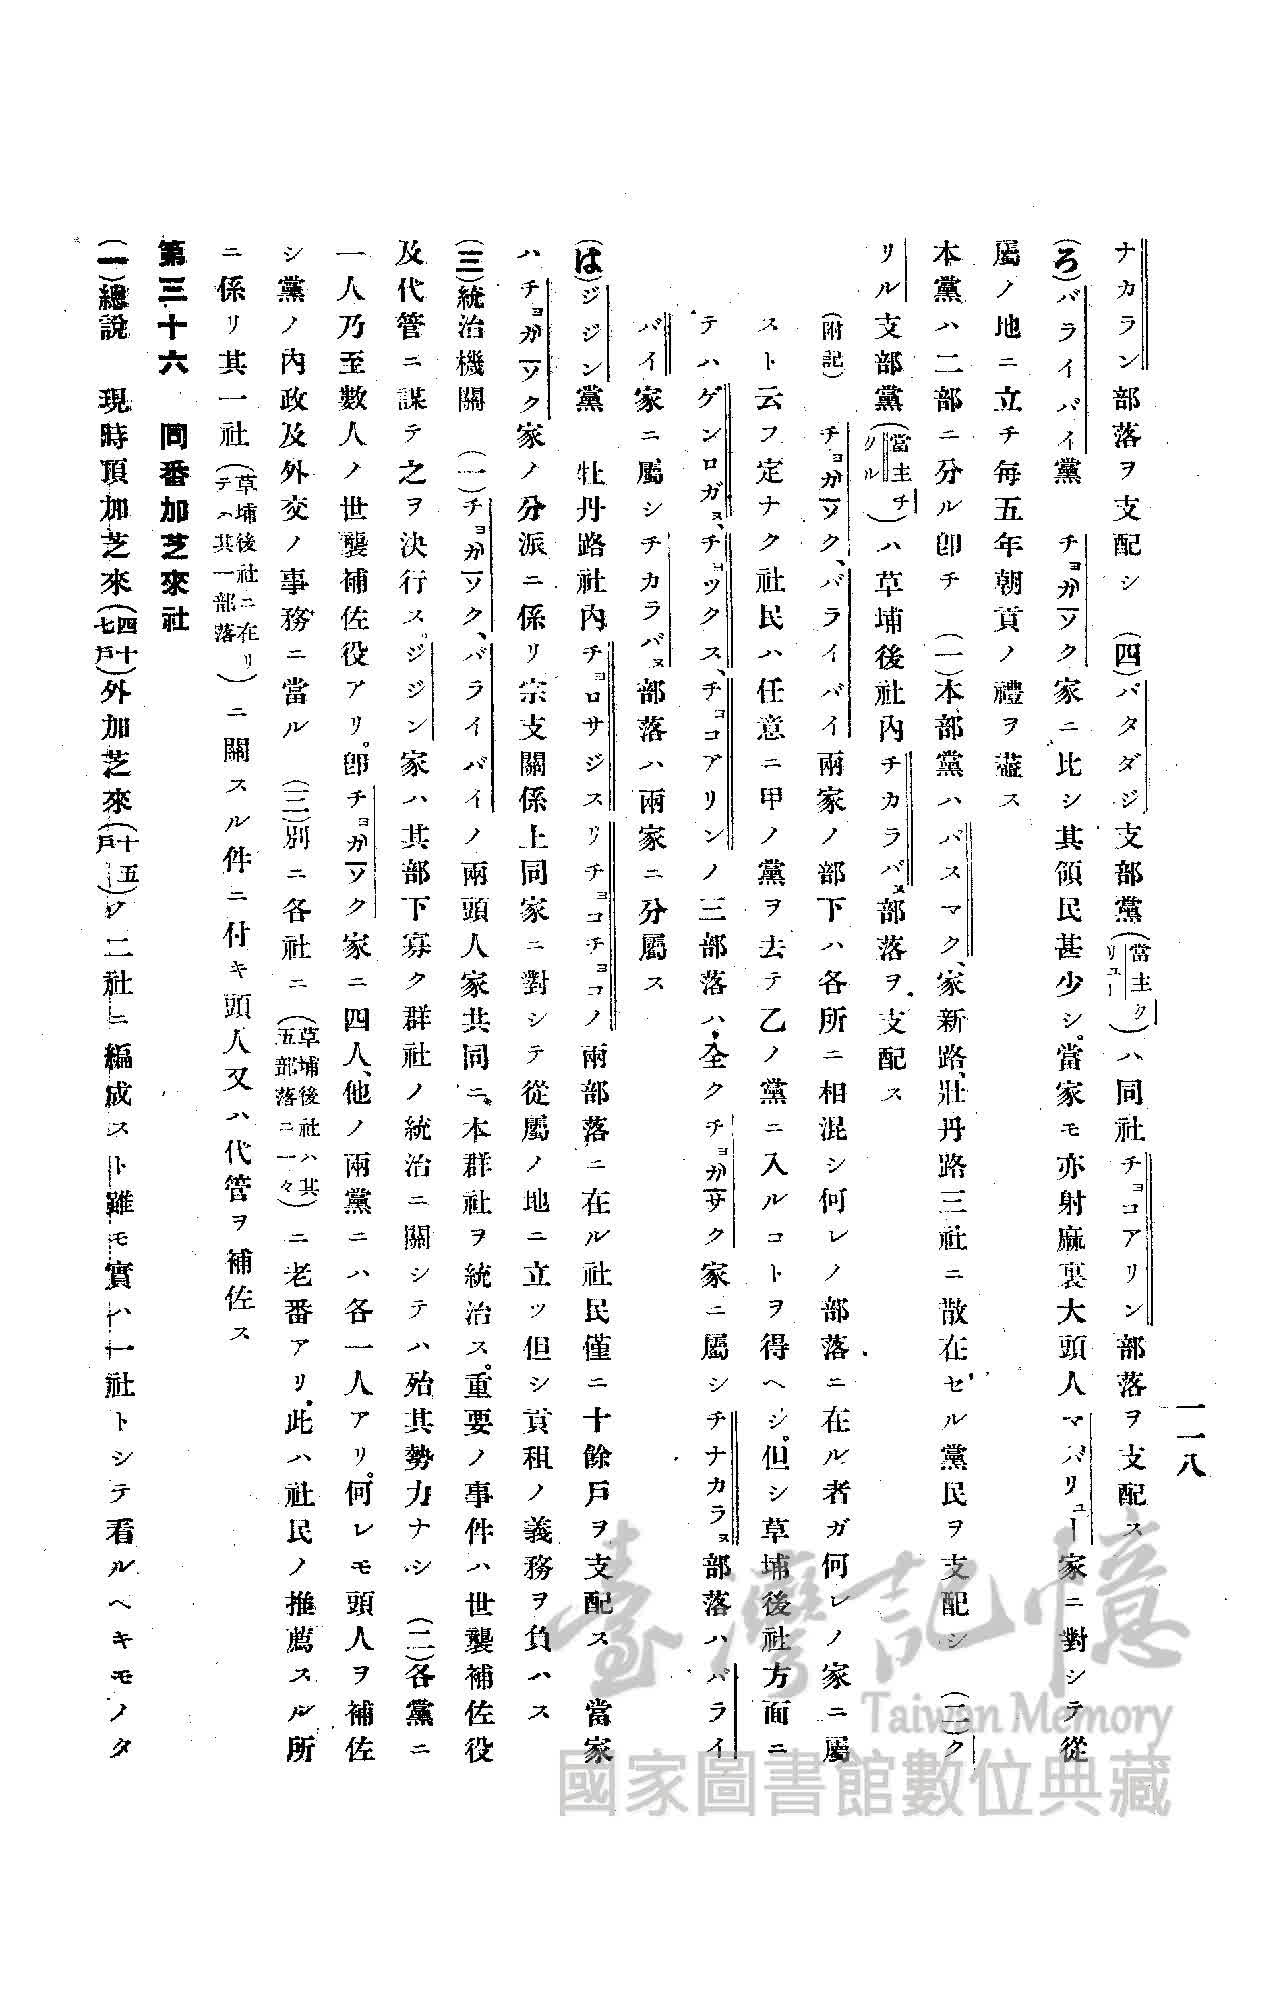 一一八
ナカラン部落ヲ支配シ　(四)パタダジ支部黨(當主クリユー)ハ同社チョコアリン部落ヲ支配ス
(ろ)バライバイ黨　チョガーソク家ニ比シ其領民甚少シ。當家モ亦射麻裏大頭人マバリユー家ニ對シテ從
屬ノ地ニ立チ每五年朝貢ノ禮ヲ盡ス
本黨ハ二部ニ分ル卽チ　(一)本部黨ハバスマク家新路、牡丹路三社ニ散在セル黨民ヲ支配シ　(二)ク
リル支部黨(當主チクル)ハ草埔後社內チカラバヌ部落ヲ支配ス
(附記)　チョガーソク、バライバイ兩家ノ部下ハ各所ニ相混シ何レノ部落ニ在ル者ガ何レノ家ニ屬
スト云フ定ナク社民ハ任意ニ甲ノ黨ヲ去テ乙ノ黨ニ入ルコトヲ得ヘシ。但シ草埔後社方面ニ
テハゲンロガヌ、チョックス、チョコアリンノ三部落ハ全クチョガーサク家ニ屬シチナカラヌ部落ハバライ
バイ家ニ屬シチカラバヌ部落ハ兩家ニ分屬ス
(は)ジジン黨　牡丹路社內チョロサジスリチョコチョコノ兩部落ニ在ル社民僅ニ十餘戶ヲ支配ス　當家
ハチョガーソク家ノ分派ニ係リ宗支關係上同家ニ對シテ從屬ノ地ニ立ツ但シ貢租ノ義務ヲ負ハス
(三)統治機關　(一)チョガーソク、バライバイノ兩頭人家共同ニ本群社ヲ統治ス。重要ノ事件ハ世襲補佐役
及代管ニ謀テ之ヲ決行ス。ジジン家ハ其部下寡ク群社ノ統治ニ關シテハ殆其勢力ナシ　(二)各黨ニ
一人乃至數人ノ世襲補佐役アリ。卽チョガーソク家ニ四人、他ノ兩黨ニハ各一人アリ。何レモ頭人ヲ補佐
シ黨ノ內政及外交ノ事務ニ當ル　(三)別ニ各社ニ(草埔後社ハ其五部落ニ一々)ニ老番アリ。此ハ社民ノ推薦スル所
ニ係リ其一社(草埔後社ニ在リテハ其一部落)ニ關スル件ニ付キ頭人又ハ代管ヲ補佐ス
第三十六　同番加芝來社
(一)總說　現時頂加芝來(四十七戶)外加芝來(十五戶)ク二社ニ編成スト雖モ實ハ一社トシテ看ルヘキモノタ
臺灣記憶
Taiwan Memory
國家圖書館數位典藏